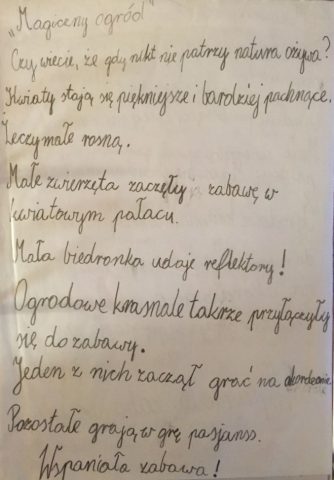 „Magiczny ogród"
Czy wiecie, że gdy nikt nie patrzy natura ożywa?
Kwiaty stają się piękniejsze i bardziej pachnące.
Rzeczy małe rosną.
Małe zwierzęta zaczęły zabawę w
kwiatowym pałacu.
Mała biedronka udaje reflektory!
Ogrodowe krasnale takrze przyłączyły
się do zabawy.
Jeden z nich zaczął grać na akordeonie.
Pozostałe grają w grę pasjanss.
Wspaniała zabawa!